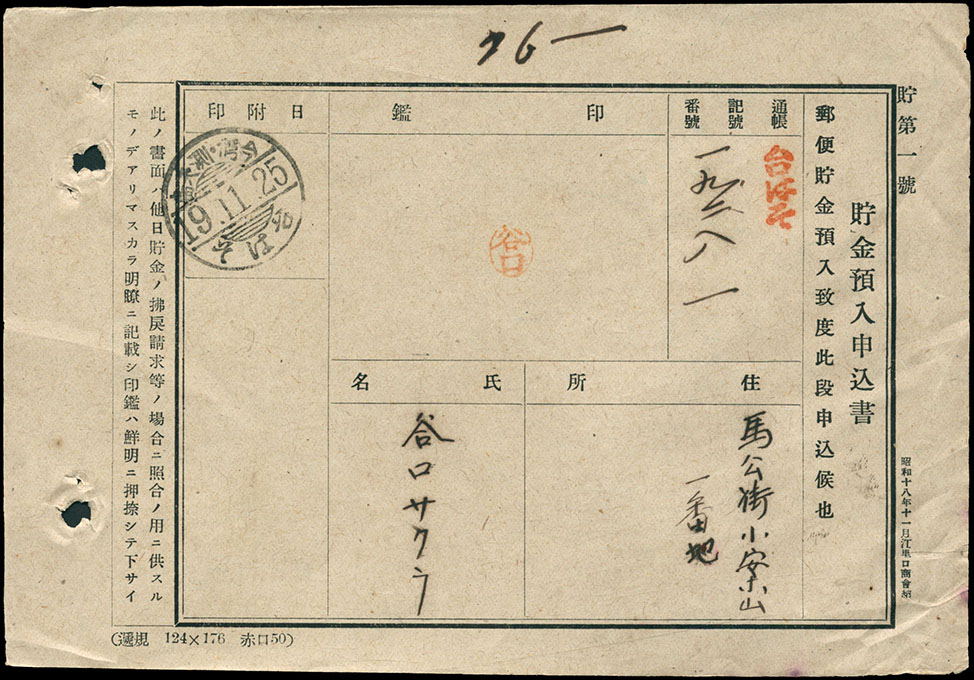 76一
貯第一號
貯金預入申込書
郵便貯金預入致度此段申込候也
昭和十八年十一月江里口商會納
通帳
記號
番號
台はそ
一九二八一
印鑑
谷口
日附印
19.11.25
そはな
住所
馬公街小案山
一番地
氏名
谷口サクラ
此ノ書面ハ他日貯金ノ拂戻請求等ノ場合ニ照合ノ用ニ供スル
モノデアリマスカラ明瞭ニ記載シ印鑑ハ鮮明ニ押捺シテ下サイ
(遞規 124×176 赤口50)